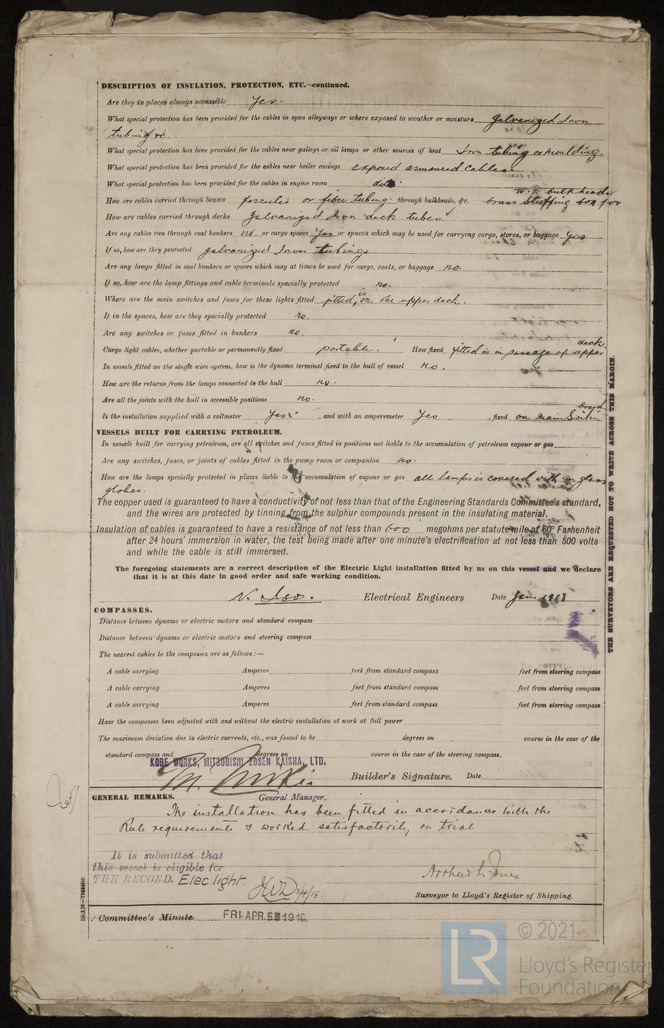 DESCRIPTION OF INSULATION, PROTECTION, ETC.—continued.
Are they in places always accessible Yes.
What special protection has been provided for the cables in open alleyways or where exposed to weather or moisture Galvanized Iron
tubing &c.
What special protection has been provided for the cables near galleys or oil lamps or other sources of heat Iron tubing or moulding
What special protection has been provided for the cables near boiler casings Exposed armoured cables
What special protection has been provided for the cables in engine room ditto
W.T. bulkheads
How are cables carried through beams ferrules or fibre tubing through bulkheads, &c. brass stuffing box for
How are cables carried through decks Galvanized Iron deck tubes
Are any cables run through coal bunkers no. or cargo spaces Yes or spaces which may be used for carrying cargo, stores, or baggage Yes
If so, how are they protected Galvanized Iron tubings
Are any lamps fitted in coal bunkers or spaces which may at times be used for cargo, coals, or baggage no.
If so, how are the lamp fittings and cable terminals specially protected no.
Where are the main switches and fuses for these lights fitted fitted is on the upper deck.
If in the spaces, how are they specially protected no.
Are any switches or fuses fitted in bunkers no.
deck.
Cargo light cables, whether portable or permanently fixed portable. How fixed fitted is in passage of upper
In vessels fitted on the single wire system, how is the dynamo terminal fixed to the hull of vessel no.
How are the returns from the lamps connected to the hull no.
Are all the joints with the hull in accessible positions no.
board
Is the installation supplied with a voltmeter Yes , and with an amperemeter Yes , fixed on main Switch
VESSELS BUILT FOR CARRYING PETROLEUM.
In vessels built for carrying petroleum, are all switches and fuses fitted in positions not liable to the accumulation of petroleum vapour or gas
Are any switches, fuses, or joints of cables fitted in the pump room or companion no.
How are the lamps specially protected in places liable to the accumulation of vapour or gas all lamps is covered with glass
globes.
The copper used is guaranteed to have a conductivity of not less than that of the Engineering Standards Committee's standard,
and the wires are protected by tinning from the sulphur compounds present in the insulating material.
Insulation of cables is guaranteed to have a resistance of not less than 600 megohms per statute mile at 60° Farhenheit
after 24 hours' immersion in water, the test being made after one minute's electrification at not less than 500 volts
and while the cable is still immersed.
The foregoing statements are a correct description of the Electric Light installation fitted by us on this vessel and we declare
that it is at this date in good order and safe working condition.
Electrical Engineers Date Jan. 1918
COMPASSES.
Distance between dynamo or electric motors and standard compass
Distance between dynamo or electric motors and steering compass
The nearest cables to the compasses are as follows:—
A cable carrying Amperes feet from standard compass feet from steering compass
A cable carrying Amperes feet from standard compass feet from steering compass
A cable carrying Amperes feet from standard compass feet from steering compass
Have the compasses been adjusted with and without the electric installation at work at full power
The maximum deviation due to electric currents, etc., was found to be degrees on course in the case of the
standard compass and degrees on course in the case of the steering compass.
KOBE WORKS, MITSUBISHI ZOSEN KAISHA, LTD.
Builder's Signature. Date
General Manager.
GENERAL REMARKS.
The installation has been fitted in accordance with the
Rule requirements & worked satisfactorily on trial
It is submitted that
this vessel is eligible for
THE RECORD. Elec. light.
Surveyor to Lloyd's Register of Shipping.
Committee's Minute FRI. APR. 5 1918.
THE SURVEYORS ARE REQUESTED NOT TO WRITE ACROSS THIS MARGIN.
LR
© 2021
Lloyd's Register
Foundation